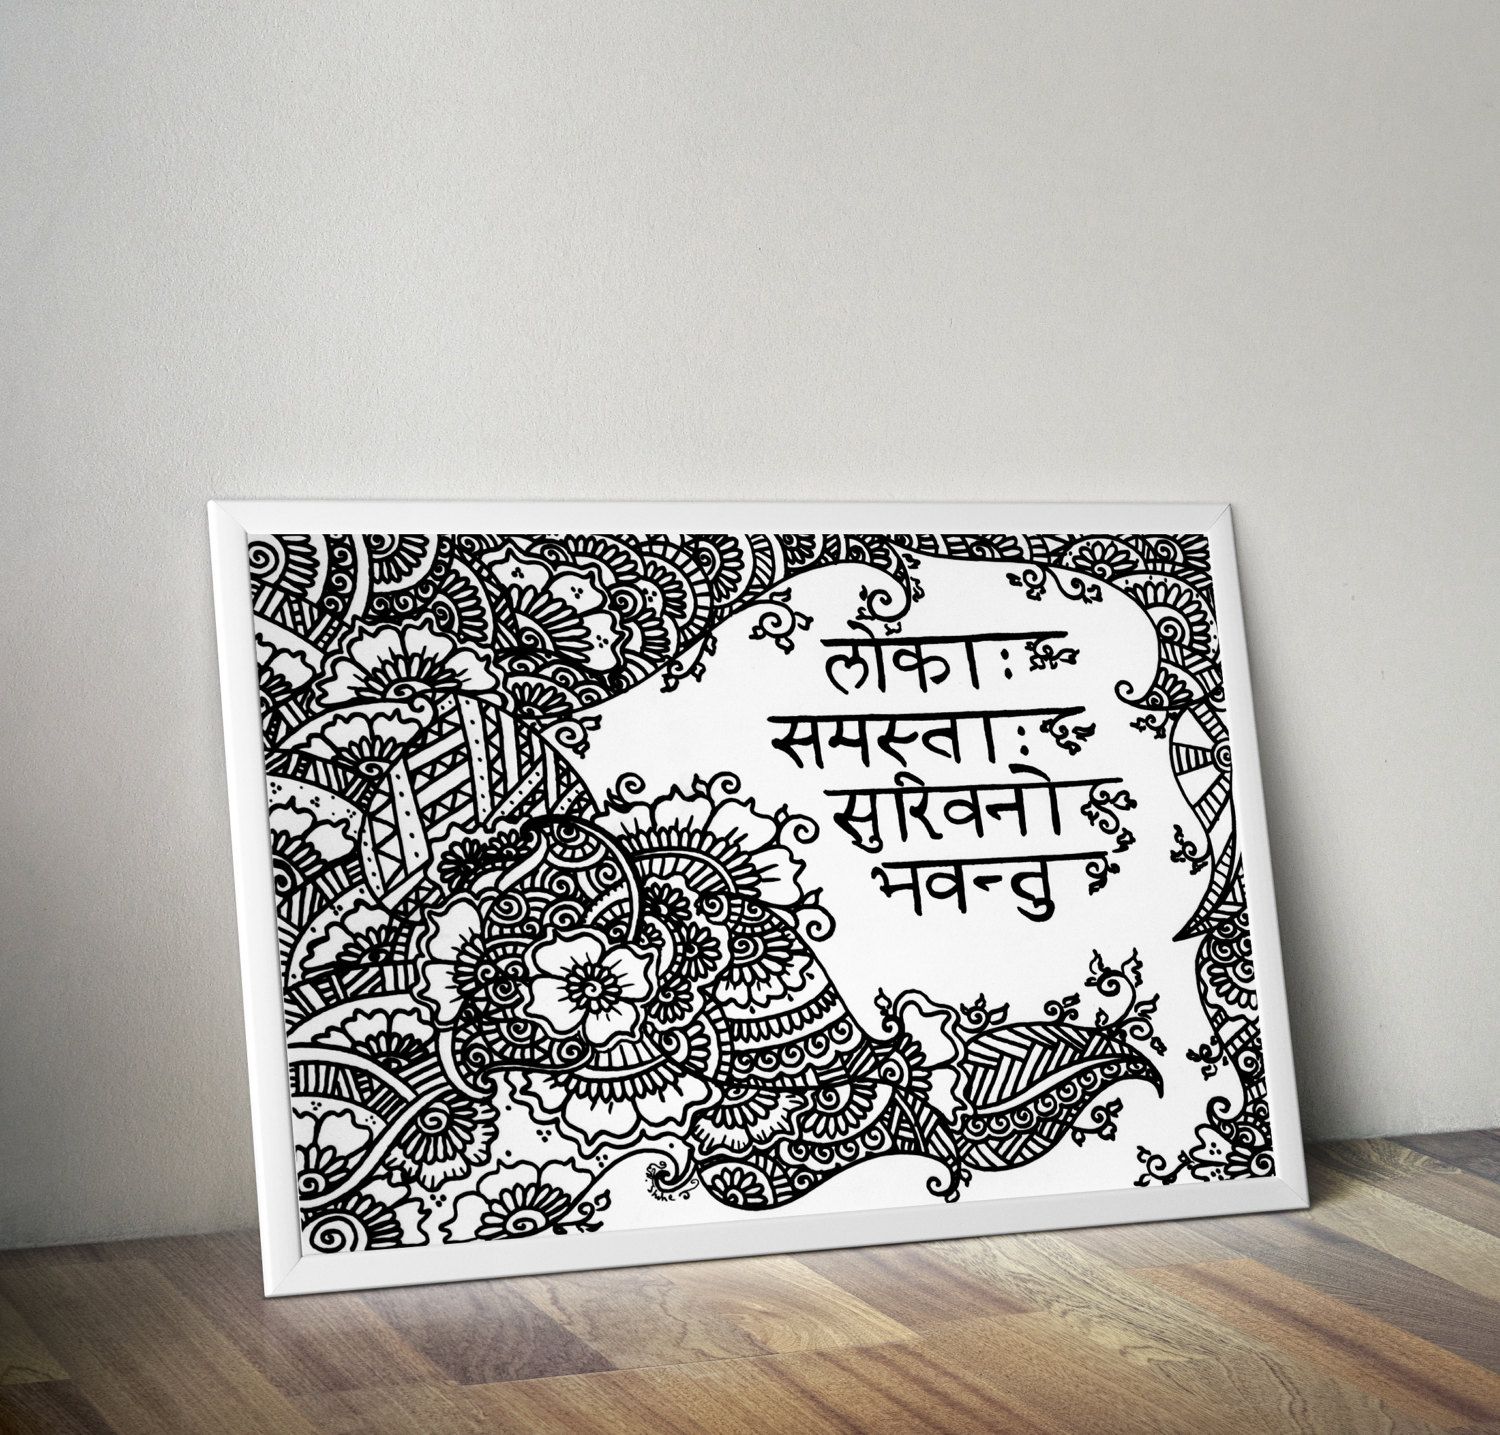 लोकाः
समस्ताः
सुखिनो
भवन्तु